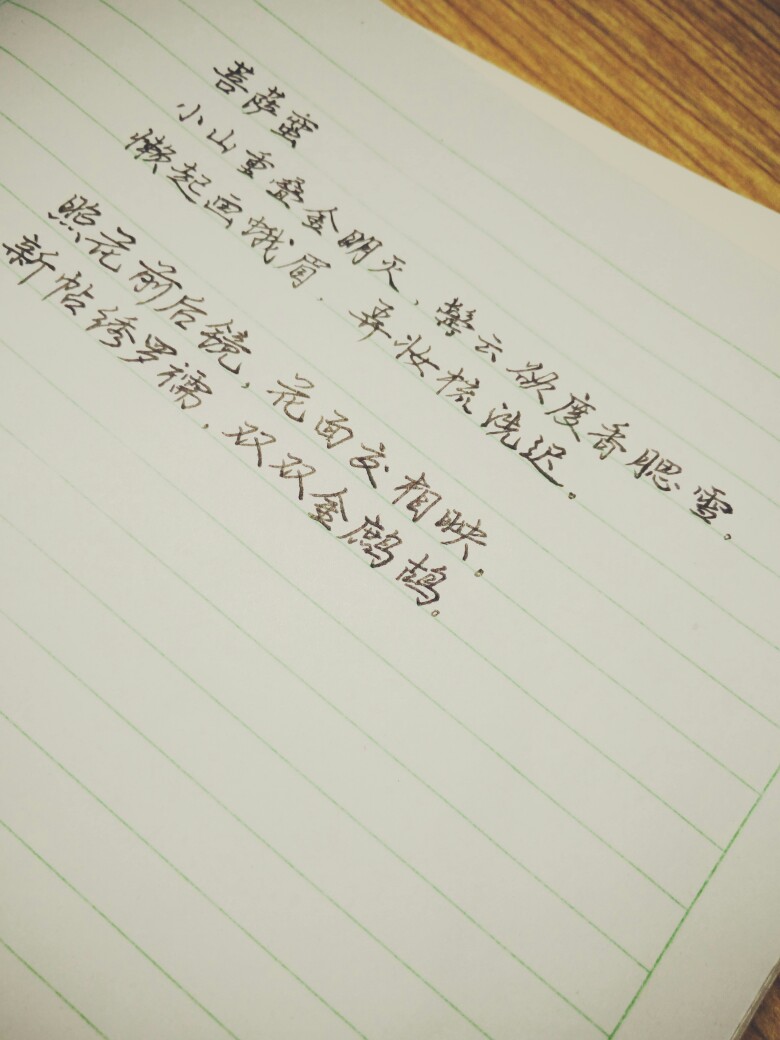 菩萨蛮
小山重叠金明灭,鬓云欲度香腮雪。
懒起画蛾眉,弄妆梳洗迟。
照花前后镜,花面交相映。
新帖绣罗襦,双双金鹧鸪。